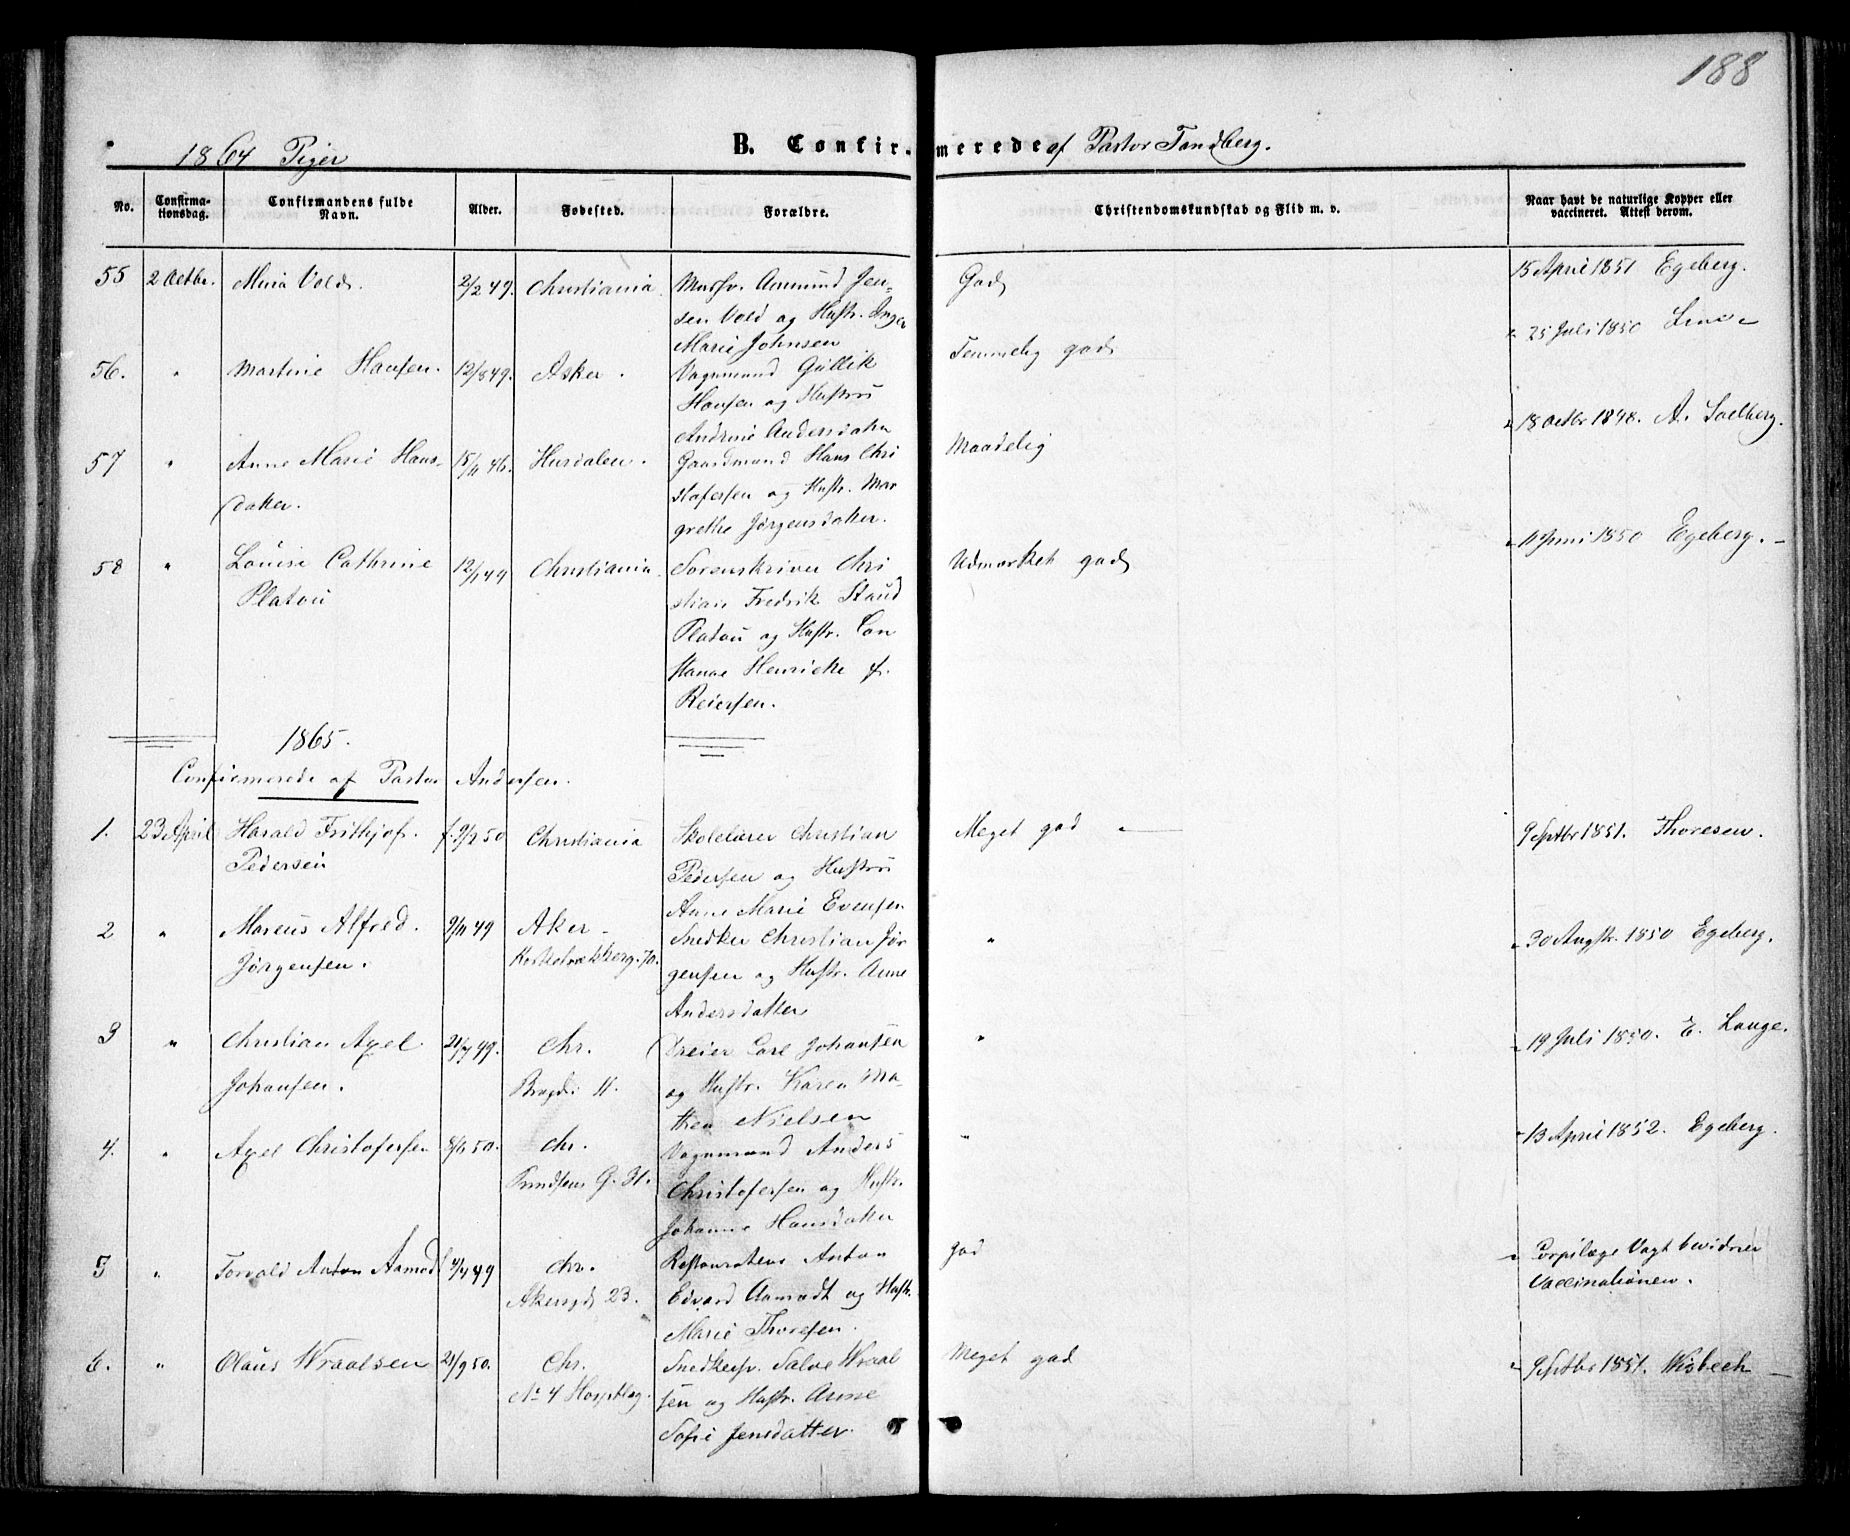 188
1864 Piger B. Confirmerede af Pastor Tandberg.
No. Confirmationsdag. Confirmandens fulde Navn. Alder. Fødested. Forældre. Christendomskundskab og Flid m. v. Naar havt de naturlige Kopper eller vaccineret. Attest derom.
55 2 Octbr. Mina Vold. 2/2 49. Christiania Amund Jen- God 15 April 1851 Egeberg.
sen Vold og Hustr. Inger
Marie Johnsen
56. " Martine Hansen. 12/8 49. Asker. Vognmand Gullik Temmelig god " 25 Juli 1850
Hansen og Hustru
Andrine Andersdatter
57 " Anne Marie Hans- 15/11 46. Hurdalen. Gaardmand Hans Chri Maadelig " 18 Octbr 1848. A. Soelberg.
datter. stofersen og Hustr. Mar
grethe Jørgensdatter.
58 " Louise Cathrine 12/1 49 Christiania. Sorenskriver Chri Udmærket god " 11 Juni 1850 Egeberg.
Platou stian Fredrik Stoud
Platou og Hustr. Con
stance Henricke f.
Reiersen.
1865.
Confirmerede af Pastor Andersen.
1. 23 April Harald Frithjof f. 9/2 50 Christiania Skolelærer Christian Meget god 9 Septbr 1851. Thoresen.
Pedersen Pedersen og Hustru
Anne Marie Evensen
2 " Marcus Alfred 9/11 49 Aker Snedker Christian Jør " " 30 Augstr. 1850 Egeberg.
Jørgensen. gensen og Hustr. Anne
Andersdatter
3 " Christian Axel 21/7 49. Chr. Dreier Carl Johansen " " 19 Juli 1850. E. Lange.
Johansen. Brogd: 11. og Hustr. Karen Ma-
thea Nielsen
4. " Axel Christofersen 8/1 50. Chr. Vognmand Anders " " 13 April 1852. Egeberg.
G. 31. Christofersen og Hustr.
Johanne Hansdatter
5 " Torvald Anton Aamodt 4/4 49 Chr. Restaurateur Anton God " Corpslæge Vogt bevidner
Akersgd 23. Edvard Aamodt og Hustr. Vaccinationen.
Marie Thoresen.
6. " Olaus Wraalsen 21/9 50. Chr. Snedkersv. Salve Wraal Meget god " 9 Septbr 1851. Wisbech
No 4 sen og Hustr. Anne
Sofie Jensdatter.